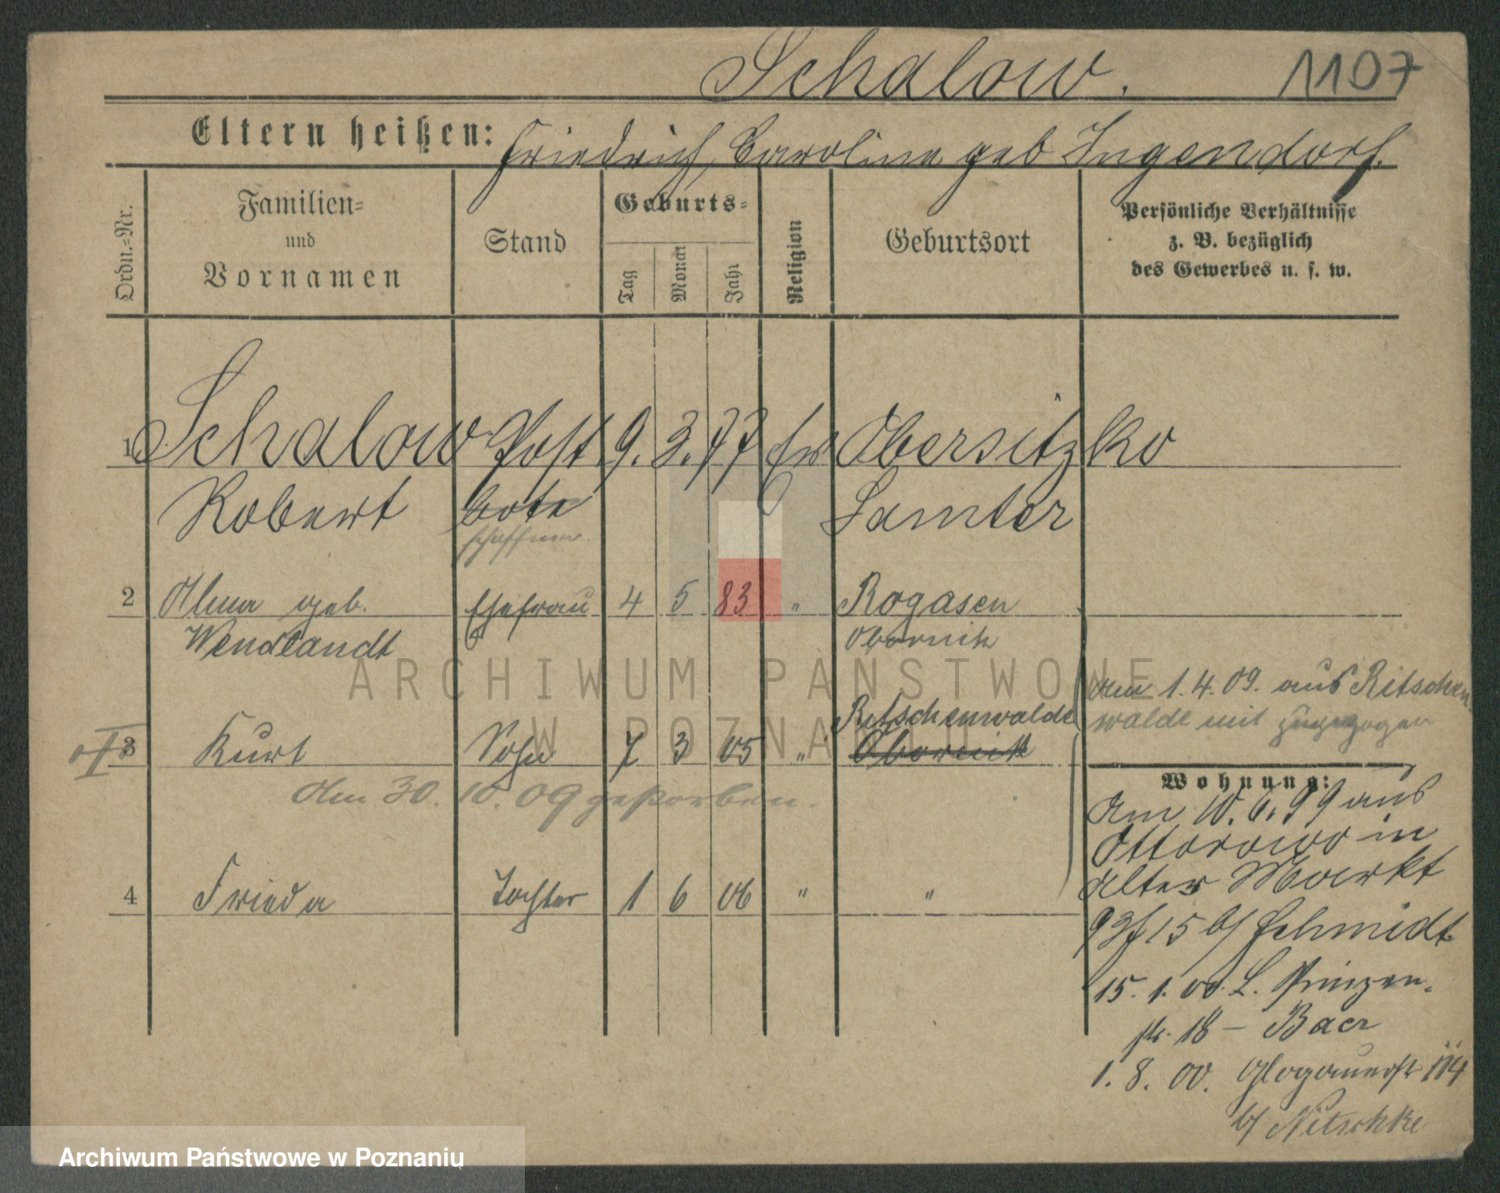 Schalow.
1107
Eltern heißen: Friedrich, Caroline geb Ingendorf.
Ordn.=Nr.
Familien=
und
Vornamen
Stand
Geburts=
Tag
Monat
Jahr
Religion
Geburtsort
Persönliche Verhältnisse
z. B. bezüglich
des Gewerbes u. s. w.
1 Schalow Post 9. 3. 77 Ev Obersitzko
Robert bote Samter
schaffner
2 Alma geb. Ehefrau 4 5 83 " Rogasen
Wendlandt Obornik
am 1.4.09. aus Ritschen
walde mit zugezogen
Ritschenwalde
3 Kurt Sohn 7 3 05 " Obornik
am 30. 10. 09 gestorben.
4 Frieda Tochter 1 6 06 " "
Wohnung:
am 10. 6. 99 aus
Ottorowo in
Alter Markt
93/15 b/ Schmidt
15. 1. 00. L. Prinzen-
str. 18 - Baer
1. 8. 00. Glogauerstr 114
b/ Nitschke
ARCHIWUM PAŃSTWOWE
W POZNANIU
Archiwum Państwowe w Poznaniu